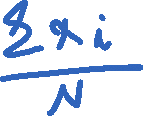 Σxi
N